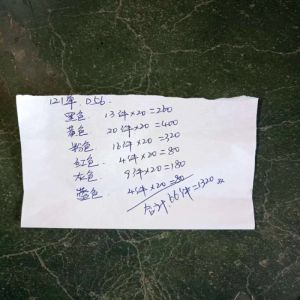 121单 0.56.
黑色 13件×20=260
黄色 20件×20=400
粉色 16件×20=320
红色 4件×20=80
灰色 9件×20=180
蓝色 4件×20=80
合计.66件=1320